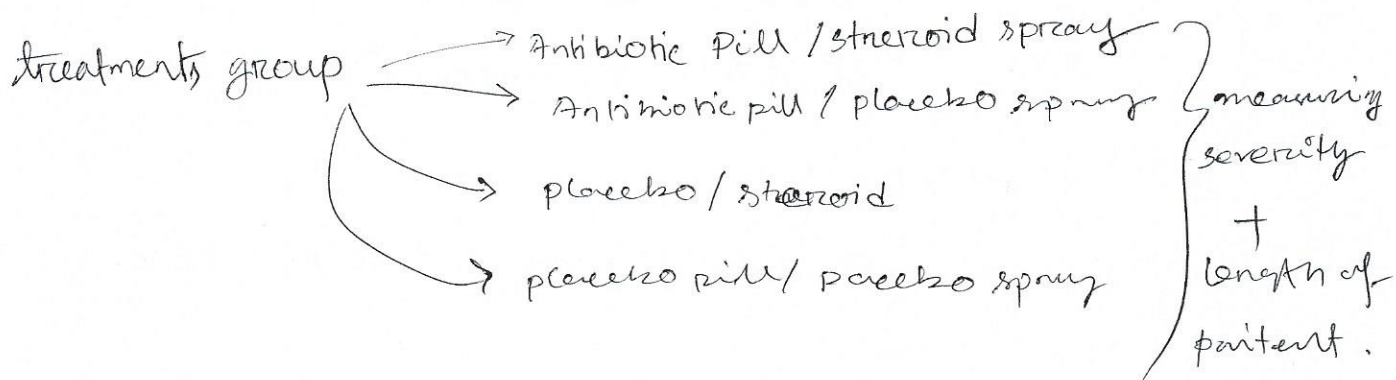 treatments group
Antibiotic Pill / steroid spray
Antibiotic pill / placebo spray
placebo / steroid
placebo pill / pacebo spray
measuring
severity
+
length of
paitent.